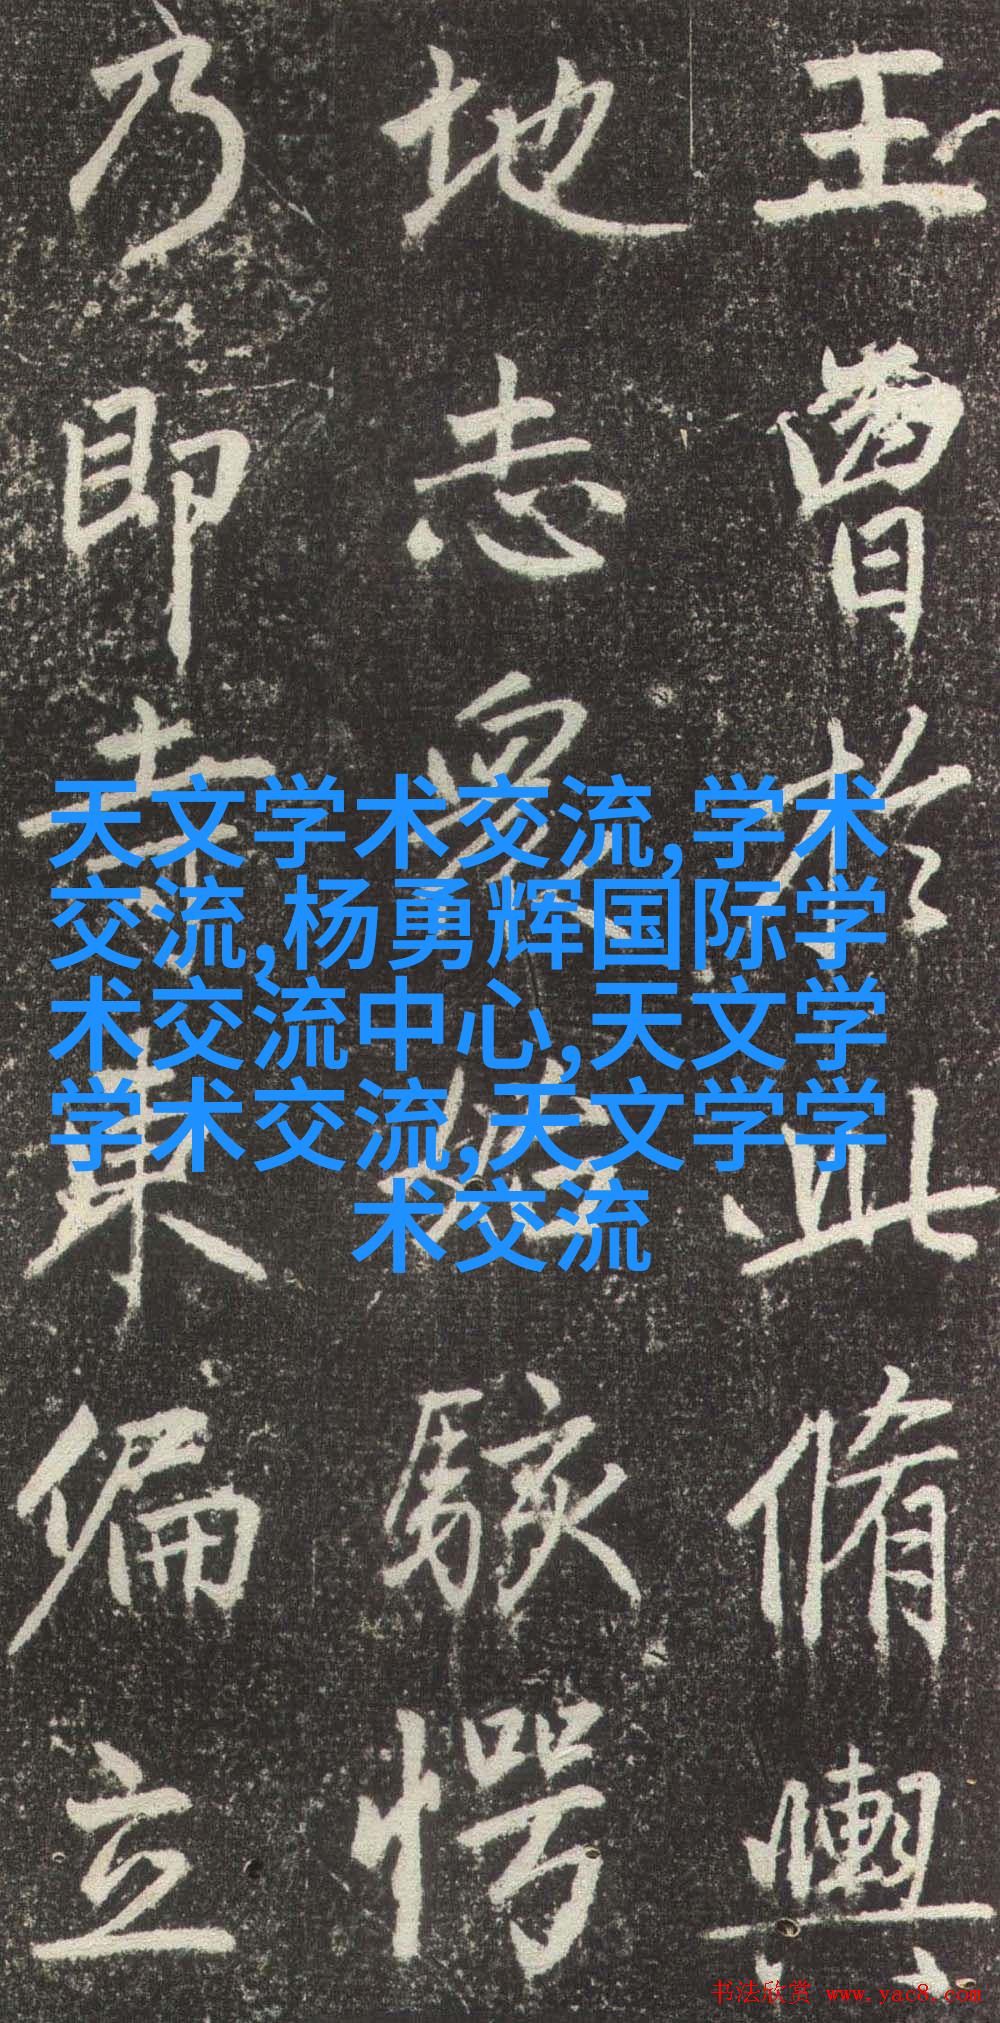 王曹於此脩輿
地志駭愕
乃即寺東偏立
天文学术交流,学术
交流,杨勇辉国际学
术交流中心,天文学
学术交流,天文学学
术交流
书法欣赏 www.yac8.com